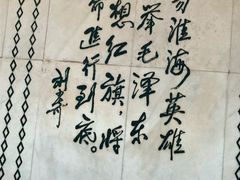 淮海英雄
举毛泽东
想红旗，将
命进行到底。